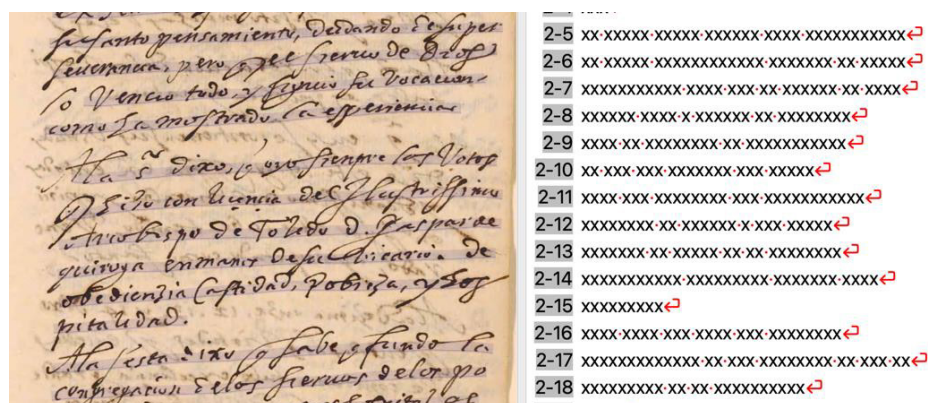 su santo pensamiento, dudando de su per
severancia, pero q̃ el sieruo de Dios
lo Vencio todo, y siguio su Vocacion
como la mostrado la esperiencia
A la 5ª dixo, q̃ oyo sienpre los Votos
q̃ hiço con licencia del Illustrissimo
Arcobispo de Toledo D. Gaspar de
quiroga en manos de su Vicario. de
obediensia Castidad, Pobreza, y Hos
pitalidad.
A la sesta dixo q̃ sabe q̃ fundo la
congregacion de los sieruos de los po
2-5 xx·xxxxxx·xxxxx·xxxxxx·xxxx·xxxxxxxxxxx
2-6 xx·xxxxxx·xxxxxxxxxxxx·xxxxxxx·xx·xxxxx
2-7 xxxxxxxxxxx·xxxx·xxx·xx·xxxxxx·xx·xxxx
2-8 xxxxxx·xxxx·x·xxxxxx·xx·xxxxxxxx
2-9 xxxx·xx·xxxxxxxx·xx·xxxxxxxxxxx
2-10 xx·xxx·xxx·xxxxxxx·xxx·xxxxx
2-11 xxxx·xxx·xxxxxxxx·xxx·xxxxxxxxxxx
2-12 xxxxxxxxx·xx·xxxxxx·x·xxx·xxxxx
2-13 xxxxxxx·xx·xxxxx·xx·xx·xxxxxxxx
2-14 xxxxxxxxxx·xxxxxxxxx·xxxxxxx·xxxx
2-15 xxxxxxxxx
2-16 xxxx·xxxx·xxx·xxxx·xxx·xxxxxxxx
2-17 xxxxxxxxxxxx·xx·xxx·xxxxxxxx·xx·xxx·xx
2-18 xxxxxxxxx·xx·xx·xxxxxxxxxx